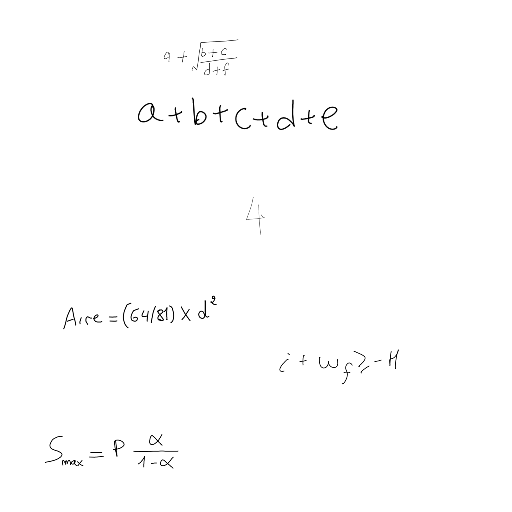 a + \sqrt{\frac{b+c}{d+f}}
a+b+c+d+e
4
Aire = (64/81) × d^2
i + w_f ≥ -H
S_{max} = P \frac{α}{1-α}